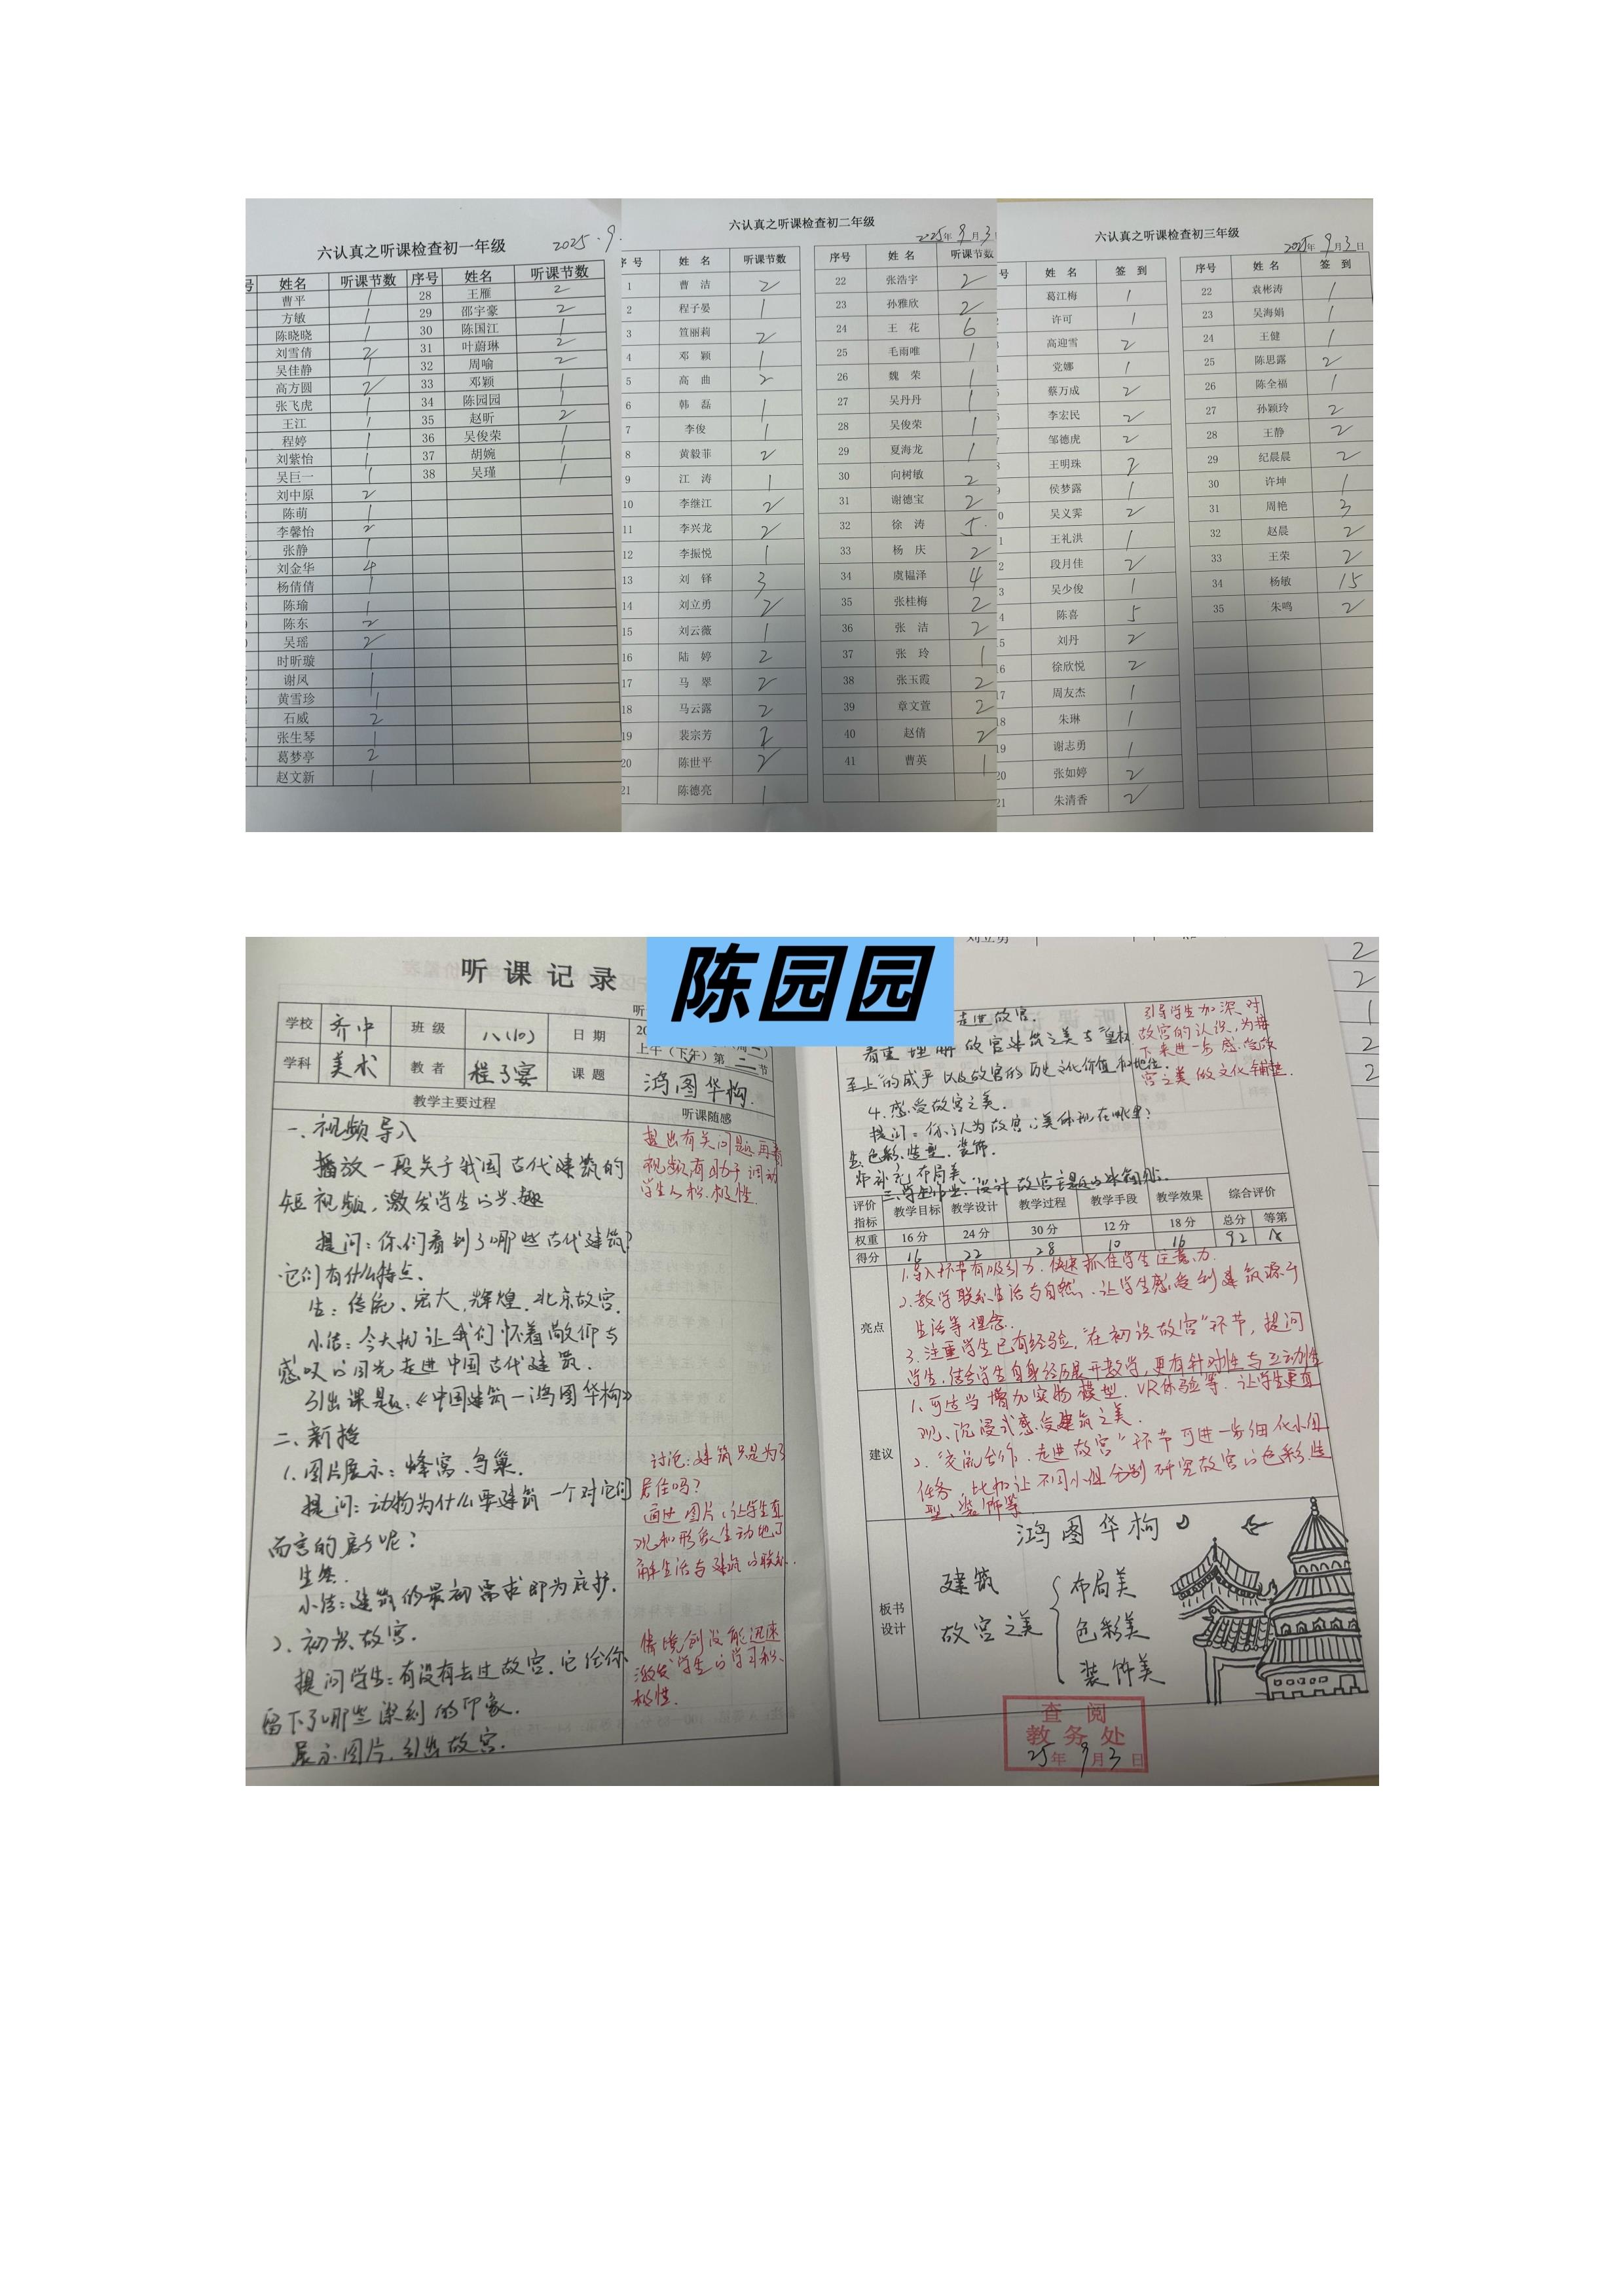 六认真之听课检查初一年级 2025.9.
号 姓名 听课节数 序号 姓名 听课节数
曹平 1 28 王雁 2
方敏 1 29 邵宇豪 2
陈晓晓 1 30 陈国江 1
刘雪倩 2 31 叶蔚琳 2
吴佳静 1 32 周喻 2
高方圆 2 33 邓颖 1
张飞虎 1 34 陈园园 1
王江 1 35 赵昕 2
程婷 1 36 吴俊荣 1
刘紫怡 1 37 胡婉 1
吴巨一 1 38 吴瑾 1
刘中原 2
陈萌 1
李馨怡 2
张静 1
刘金华 4
杨倩倩 1
陈瑜 1
陈东 2
吴瑶 2
时昕璇 1
谢凤 1
黄雪珍 1
石威 2
张生琴 1
葛梦亭 2
赵文新 1
六认真之听课检查初二年级
2025年9月3日
序号 姓名 听课节数 序号 姓名 听课节数
1 曹洁 2 22 张浩宇 2
2 程子晏 1 23 孙雅欣 2
3 笪丽莉 2 24 王花 6
4 邓颖 1 25 毛雨唯 1
5 高曲 2 26 魏荣 1
6 韩磊 1 27 吴丹丹 1
7 李俊 1 28 吴俊荣 1
8 黄毅菲 2 29 夏海龙 1
9 江涛 1 30 向树敏 2
10 李继江 2 31 谢德宝 2
11 李兴龙 2 32 徐涛 5
12 李振悦 1 33 杨庆 2
13 刘铎 3 34 虞韫泽 4
14 刘立勇 2 35 张桂梅 2
15 刘云薇 1 36 张洁 2
16 陆婷 2 37 张玲 1
17 马翠 2 38 张玉霞 2
18 马云露 2 39 章文萱 2
19 裴宗芳 2 40 赵倩 2
20 陈世平 2 41 曹英 1
21 陈德亮 1
六认真之听课检查初三年级
2025年9月3日
号 姓名 签到 序号 姓名 签到
葛江梅 1 22 袁彬涛 1
许可 1 23 吴海娟 1
高迎雪 2 24 王健 1
党娜 1 25 陈思露 2
蔡万成 2 26 陈全福 1
李宏民 2 27 孙颖玲 2
邹德虎 2 28 王静 2
王明珠 2 29 纪晨晨 2
侯梦露 1 30 许坤 1
吴义霁 2 31 周艳 3
王礼洪 1 32 赵晨 2
段月佳 2 33 王荣 2
吴少俊 1 34 杨敏 15
陈喜 5 35 朱鸣 2
刘丹 2
徐欣悦 2
周友杰 1
朱琳 1
谢志勇 1
张如婷 2
朱清香 2
陈园园
听课记录
学校 齐中 班级 八(10) 日期
上午(下午)第二节
学科 美术 教者 程子宴 课题 鸿图华构
教学主要过程 听课随感
一、视频导入
播放一段关于我国古代建筑的
短视频,激发学生的兴趣
提问:你们看到了哪些古代建筑?
它们有什么特点.
生:传统、宏大、辉煌、北京故宫.
小结:今天就让我们怀着敬仰与
感叹的目光走进中国古代建筑.
引出课题:《中国建筑一鸿图华构》
二、新授
1.图片展示:蜂窝、鸟巢.
提问:动物为什么要建筑一个对它们
而言的房子呢?
生答.
小结:建筑的最初需求即为庇护.
2.初识故宫.
提问学生:有没有去过故宫.它给你
留下了哪些深刻的印象.
展示图片,引出故宫.
提出有关问题再看
视频有助于调动
学生的积极性.
讨论:建筑只是为了
居住吗?
通过图片,让学生直
观和形象生动地了
解生活与建筑的联系.
情境创设能迅速
激发学生的学习积
极性.
走进故宫.
着重理解故宫建筑之美与"皇权
至上"的威严以及故宫的历史文化价值和地位.
4.感受故宫之美.
提问:你认为故宫的美体现在哪里?
生:色彩、造型、装饰.
师补充:布局美.
三、学生作业:设计故宫主题的冰箱贴.
引导学生加深对
故宫的认识,为接
下来进一步感受故
宫之美做文化铺垫.
评价指标 教学目标 教学设计 教学过程 教学手段 教学效果 综合评价
权重 16分 24分 30分 12分 18分 总分 等第
得分 16 22 28 10 16 92 A
亮点
1.导入环节有吸引力,快速抓住学生注意力.
2.教学联系生活与自然,让学生感受到建筑源于
生活等理念.
3.注重学生已有经验,在初识故宫"环节,提问
学生,结合学生自身经历展开教学,更有针对性与互动性
建议
1.可适当增加实物模型、VR体验等,让学生更直
观、沉浸式感受建筑之美.
2."交流合作,走进故宫"环节可进一步细化小组
任务,比如让不同小组分别研究故宫的色彩、造
型、装饰等.
板书设计
鸿图华构
建筑
故宫之美
布局美
色彩美
装饰美
查阅
教务处
25年9月3日
2
2
1
2
2